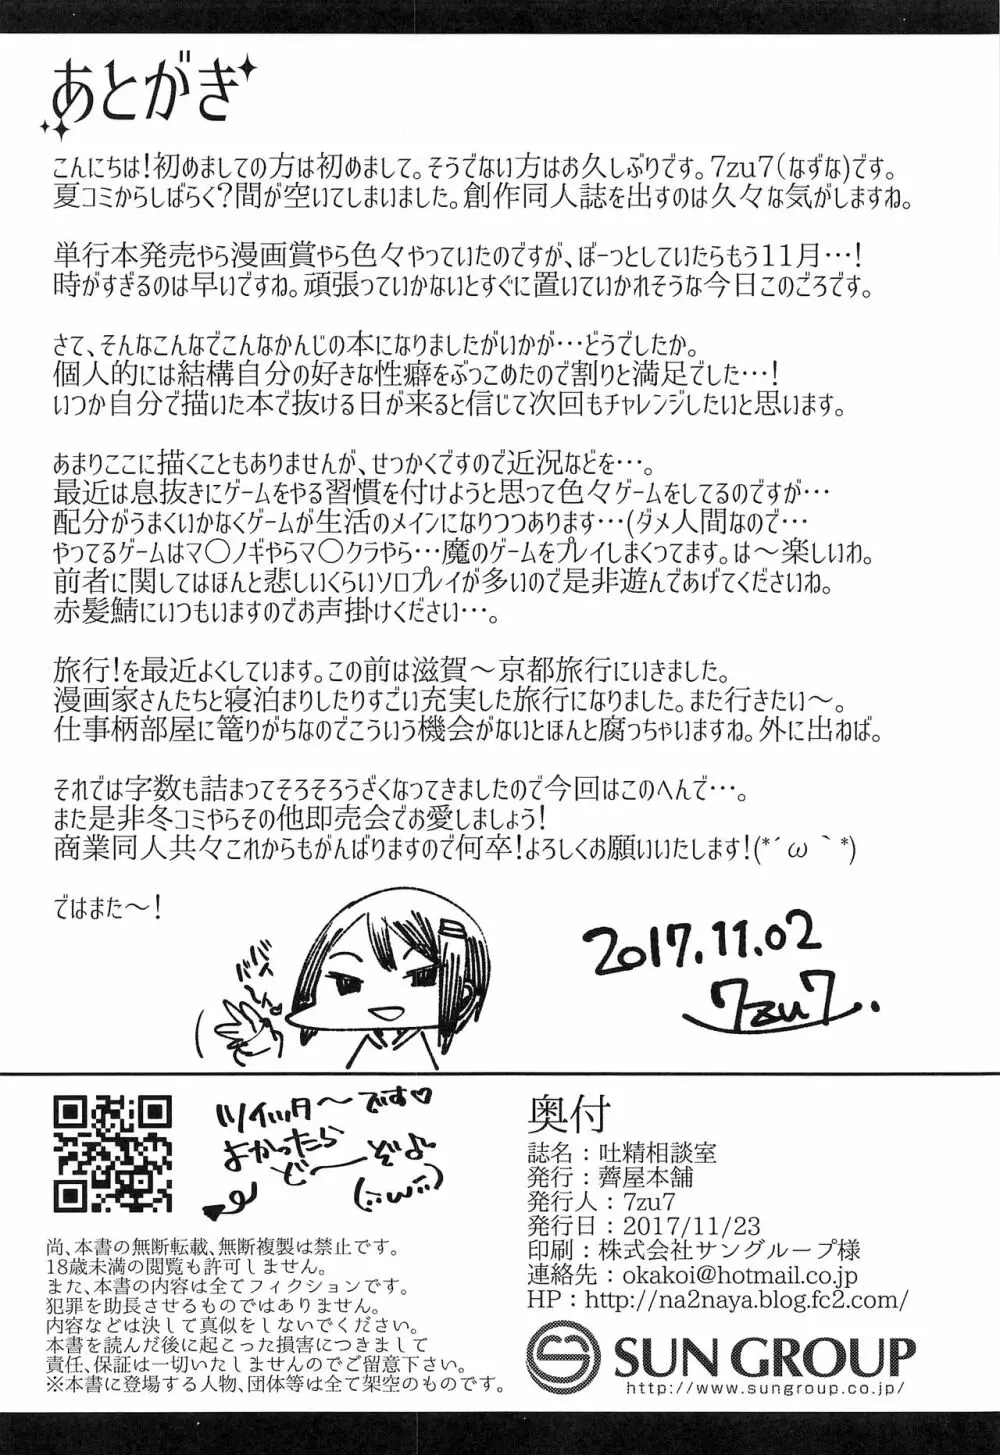 あとがき
こんにちは!初めましての方は初めまして。そうでない方はお久しぶりです。7zu7(なずな)です。
夏コミからしばらく?間が空いてしまいました。創作同人誌を出すのは久々な気がしますね。
単行本発売やら漫画賞やら色々やっていたのですが、ぼーっとしていたらもう11月…!
時がすぎるのは早いですね。頑張っていかないとすぐに置いていかれそうな今日このごろです。
さて、そんなこんなでこんなかんじの本になりましたがいかが…どうでしたか。
個人的には結構自分の好きな性癖をぶっこめたので割りと満足でした…!
いつか自分で描いた本で抜ける日が来ると信じて次回もチャレンジしたいと思います。
あまりここに描くこともありませんが、せっかくですので近況などを…。
最近は息抜きにゲームをやる習慣を付けようと思って色々ゲームをしてるのですが…
配分がうまくいかなくゲームが生活のメインになりつつあります…(ダメ人間なので…
やってるゲームはマ〇ノギやらマ〇クラやら…魔のゲームをプレイしまくってます。は～楽しいわ。
前者に関してはほんと悲しいくらいソロプレイが多いので是非遊んであげてくださいね。
赤髪鯖にいつもいますのでお声掛けください…。
旅行!を最近よくしています。この前は滋賀～京都旅行にいきました。
漫画家さんたちと寝泊まりしたりすごい充実した旅行になりました。また行きたい～。
仕事柄部屋に篭りがちなのでこういう機会がないとほんと腐っちゃいますね。外に出ねば。
それでは字数も詰まってそろそろうざくなってきましたので今回はこのへんで…。
また是非冬コミやらその他即売会でお愛しましょう!
商業同人共々これからもがんばりますので何卒!よろしくお願いいたします!(*´ω｀*)
ではまた～!
バイバーイ
2017.11.02
7zu7.
ツイッター～です♡
よかったら
どーぞよ
(:ω:)
奥付
誌名：吐精相談室
発行：薺屋本舗
発行人：7zu7
発行日：2017/11/23
印刷：株式会社サングループ様
連絡先：okakoi@hotmail.co.jp
HP：http://na2naya.blog.fc2.com/
SUN GROUP
http://www.sungroup.co.jp/
尚、本書の無断転載、無断複製は禁止です。
18歳未満の閲覧も許可しません。
また、本書の内容は全てフィクションです。
犯罪を助長させるものではありません。
内容などは決して真似をしないでください。
本書を読んだ後に起こった損害につきまして
責任、保証は一切いたしませんのでご留意下さい。
※本書に登場する人物、団体等は全て架空のものです。